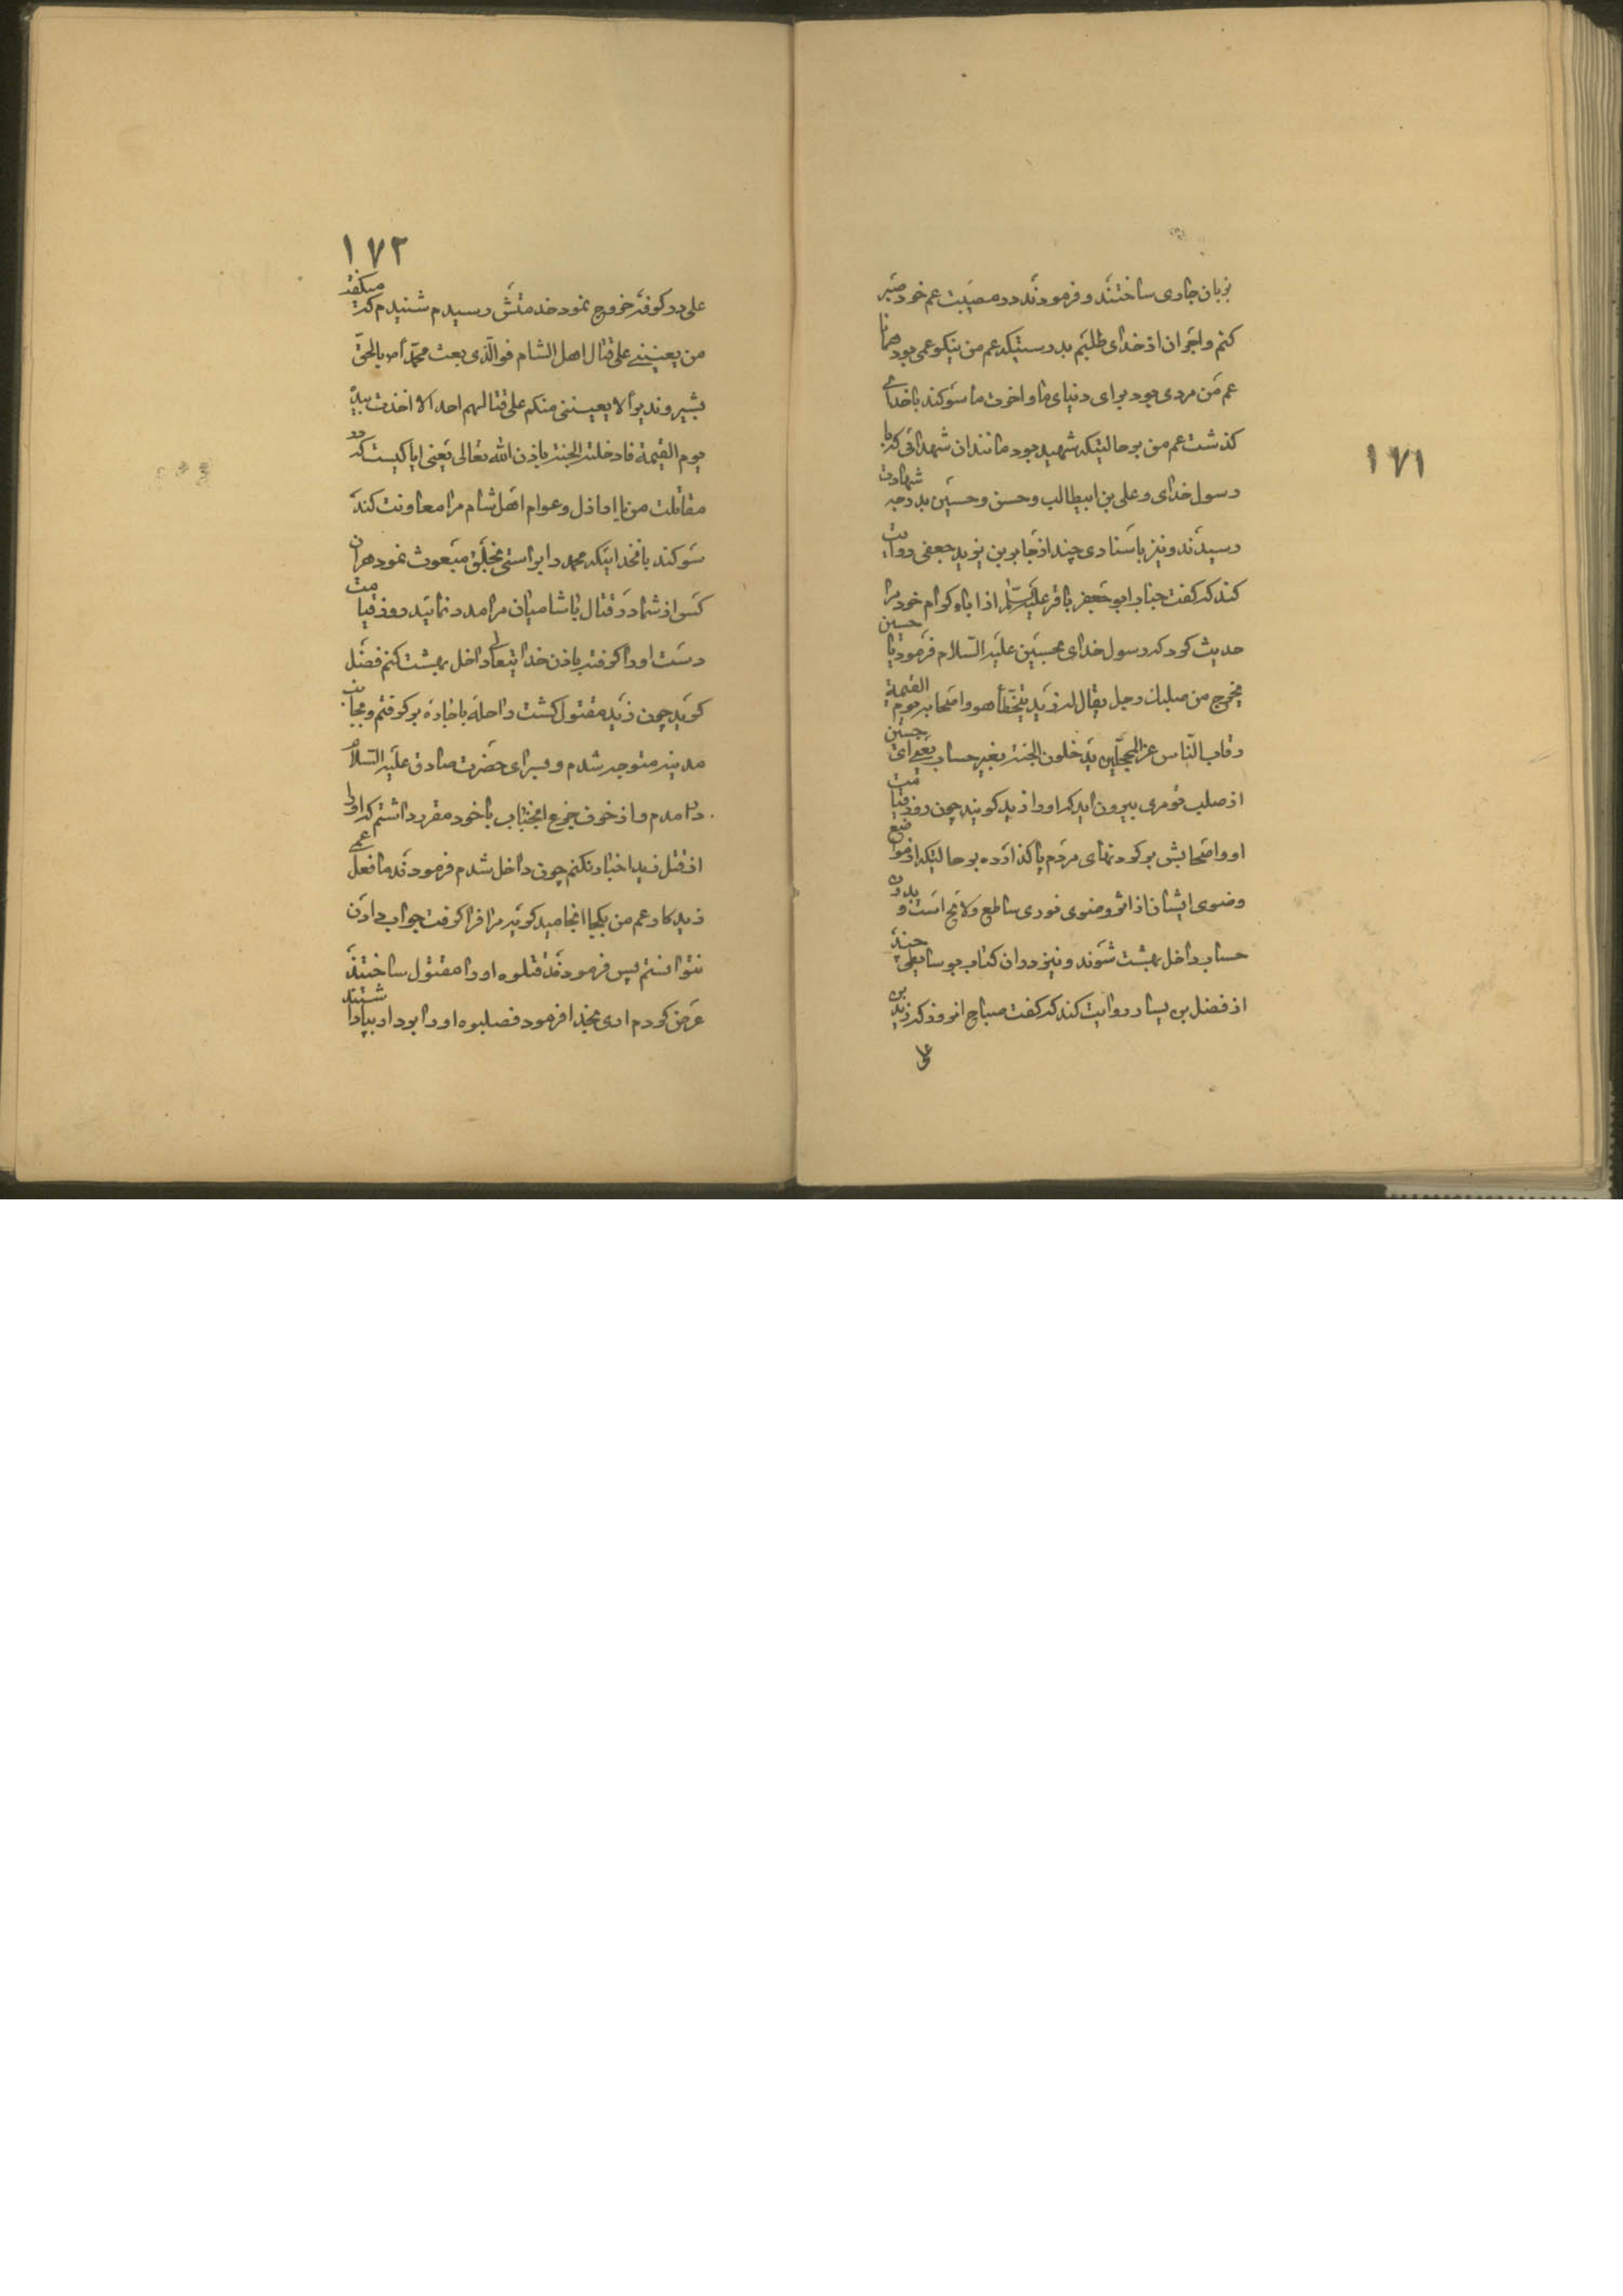 ۱۷۱
بزبان جاری ساختند و فرمودند در مصیبت عم خود صبر
کنم و اجر ان از خدای طلبم بدرستیکه عم من نیکو عمی بود همانا
عم من مردی بود برای دنیای ما و اخرت ما سوکند با خدای
کذشت عم من بر حالتیکه شهید بود مانند ان شهدائی که با
رسول خدای و علی بن ابیطالب و حسن و حسین بدرجه شهادت
رسیدند و نیز باسنادی چند از جابر بن یزید جعفی روایت
کند که کفت جناب ابو جعفر باقر علیه السلام از اباء کرام خود مرا
حدیث کرد که رسول خدای بحسین علیه السلام فرمود یا حسین
یخرج من صلبك رجل یقال له زید یتخطأ هو و اصحابه یوم القیمة
رقاب الناس غر المحجلین یدخلون الجنة بغیر حساب یعنی ای حسین
از صلب تو مردی بیرون اید که او را زید کویند چون روز قیامت
او و اصحابش بر کردنهای مردم پا کذارده بر حالتیکه از مواضع
وضوی ایشان از اثر وضوی نوری ساطع و لامح است و بدون
حساب داخل بهشت شوند و نیز در ان کتاب بوسایطی چند
از فضل بن یسار روایت کند که کفت صباح انروز که زید بن
علی
۱۷۲
علی در کوفه خروج نمود خدمتش رسیدم شنیدم که میکفت
من یعیننی علی قتال اهل الشام فو الذی بعث محمدا بالحق
بشیرا و نذیرا لا یعیننی منکم علی قتالهم احد الا اخذت بیده
یوم القیمة فادخلته الجنة باذن الله تعالی یعنی ایا کیست که در
مقاتلت من با اراذل و عوام اهل شام مرا معاونت کند
سوکند بانخدائیکه محمد را براستی بخلق مبعوث نمود هر ان
کسی از شما در قتال با شامیان مرا مدد نماید روز قیامت
دست او را کرفته باذن خدایتعالی داخل بهشت کنم فضل
کوید چون زید مقتول کشت راحله باجاره بر کرفتم و بجانب
مدینه متوجه شدم و بسرای حضرت صادق علیه السلام
در امدم و از خوف جزع انجناب با خود مقرر داشتم که او را
از قتل زید اخبار نکنم چون داخل شدم فرمودند ما فعل عمی
زید کار عم من بکجا انجامید کوید مرا فرا کرفت جواب دادن
نتوانستم پس فرمودند قتلوه او را مقتول ساختند
عرض کردم اری بخدا فرمود فصلبوه او را بردار بپا داشتند